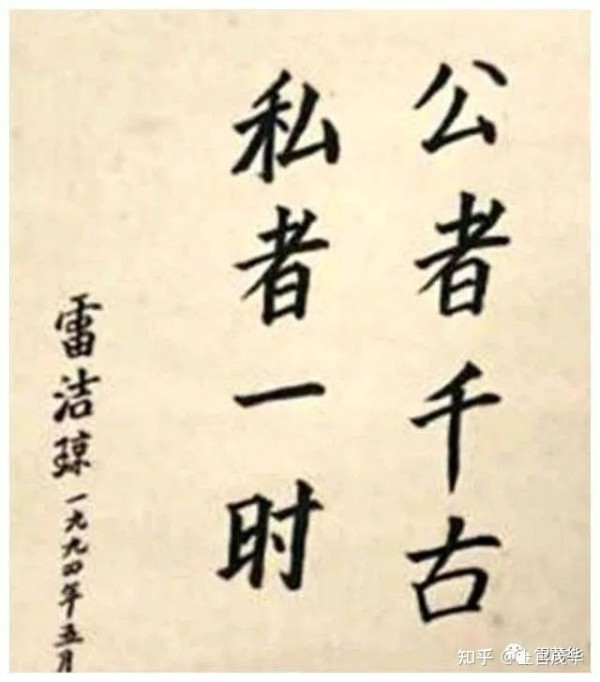 公者千古
私者一时
雷洁琼一九九四年五月
知乎